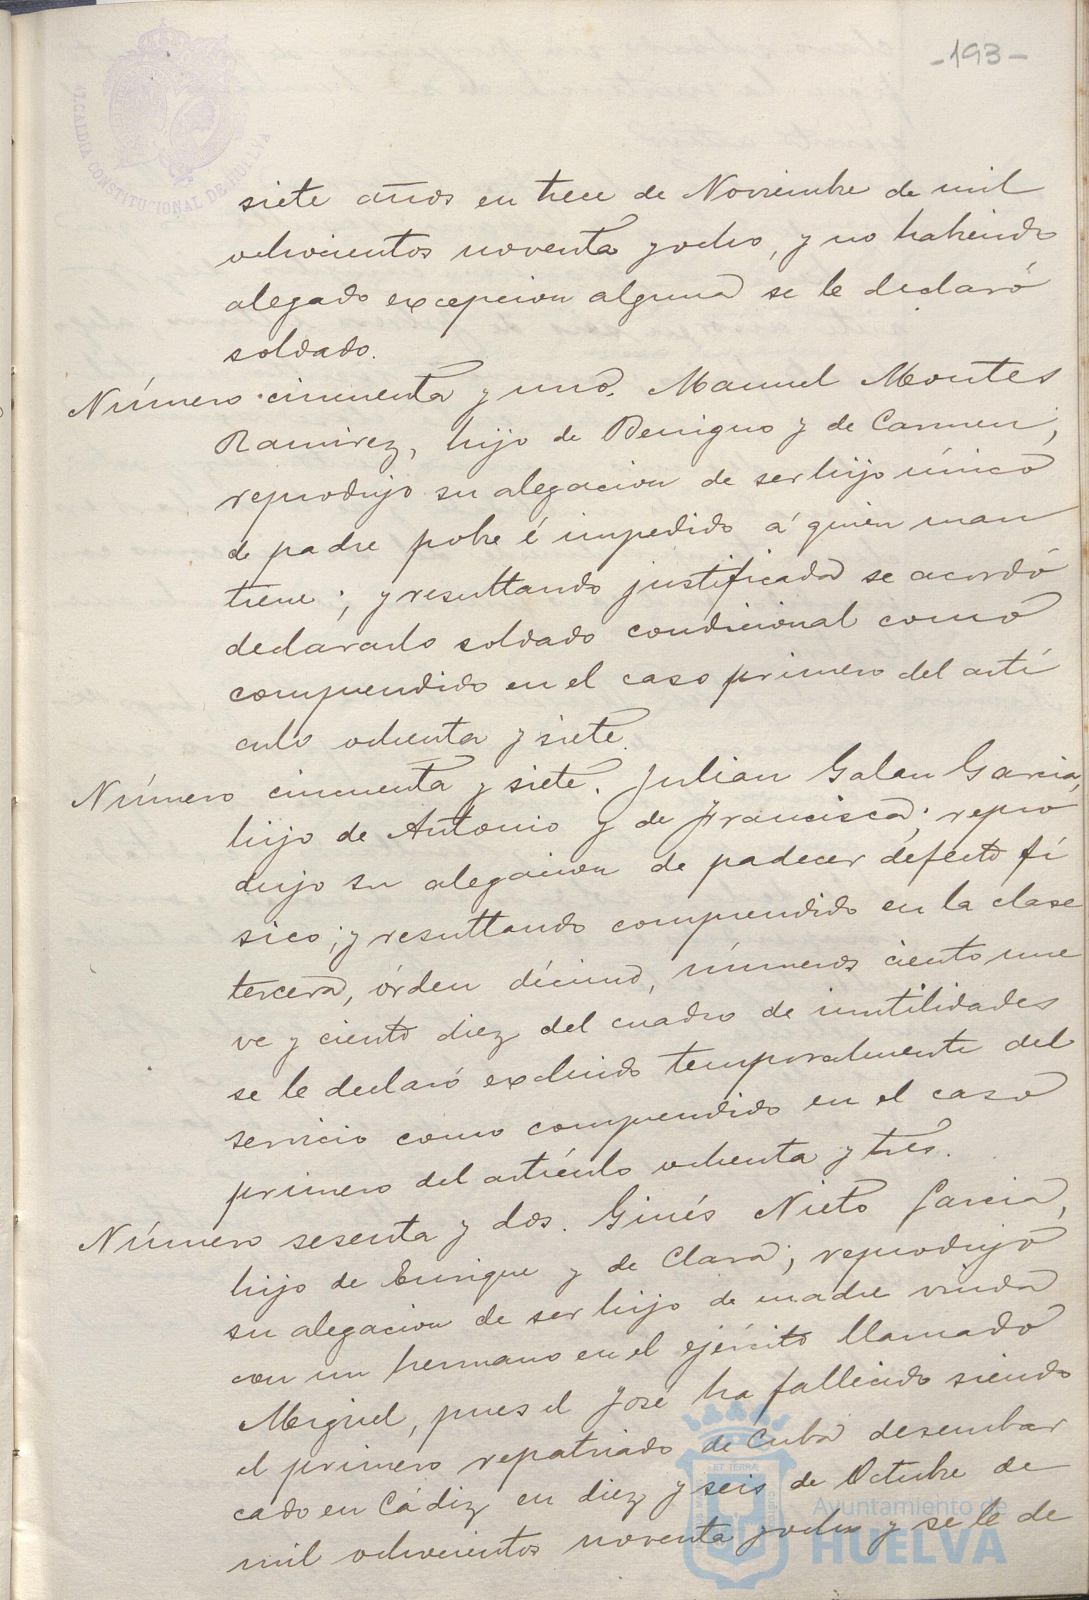 -193-
ALCALDIA CONSTITUCIONAL DE HUELVA
siete años en trece de Noviembre de mil
ochocientos noventa y ocho, y no habiendo
alegado excepcion alguna se le declaró
soldado.
Número cincuenta y uno. Manuel Montes
Ramirez, hijo de Benigno y de Carmen;
reprodujo su alegacion de ser hijo único
de padre pobre é impedido á quien man
tiene; y resultando justificada se acordó
declararlo soldado condicional como
comprendido en el caso primero del artí
culo ochenta y siete.
Número cincuenta y siete. Julian Galan Garcia,
hijo de Antonio y de Francisca; repro
dujo su alegacion de padecer defecto fí
sico; y resultando comprendido en la clase
tercera, órden décimo, números ciento nue
ve y ciento diez del cuadro de inutilidades
se le declaró excluido temporalmente del
servicio como comprendido en el caso
primero del artículo ochenta y tres.
Número sesenta y dos. Ginés Nieto Garcia,
hijo de Enrique y de Clara; reprodujo
su alegacion de ser hijo de madre viuda
con un hermano en el ejército llamado
Miguel, pues el José ha fallecido siendo
el primero repatriado de Cuba desembar
cado en Cádiz en diez y seis de Octubre de
mil ochocientos noventa y ocho y se le de
Ayuntamiento de
HUELVA